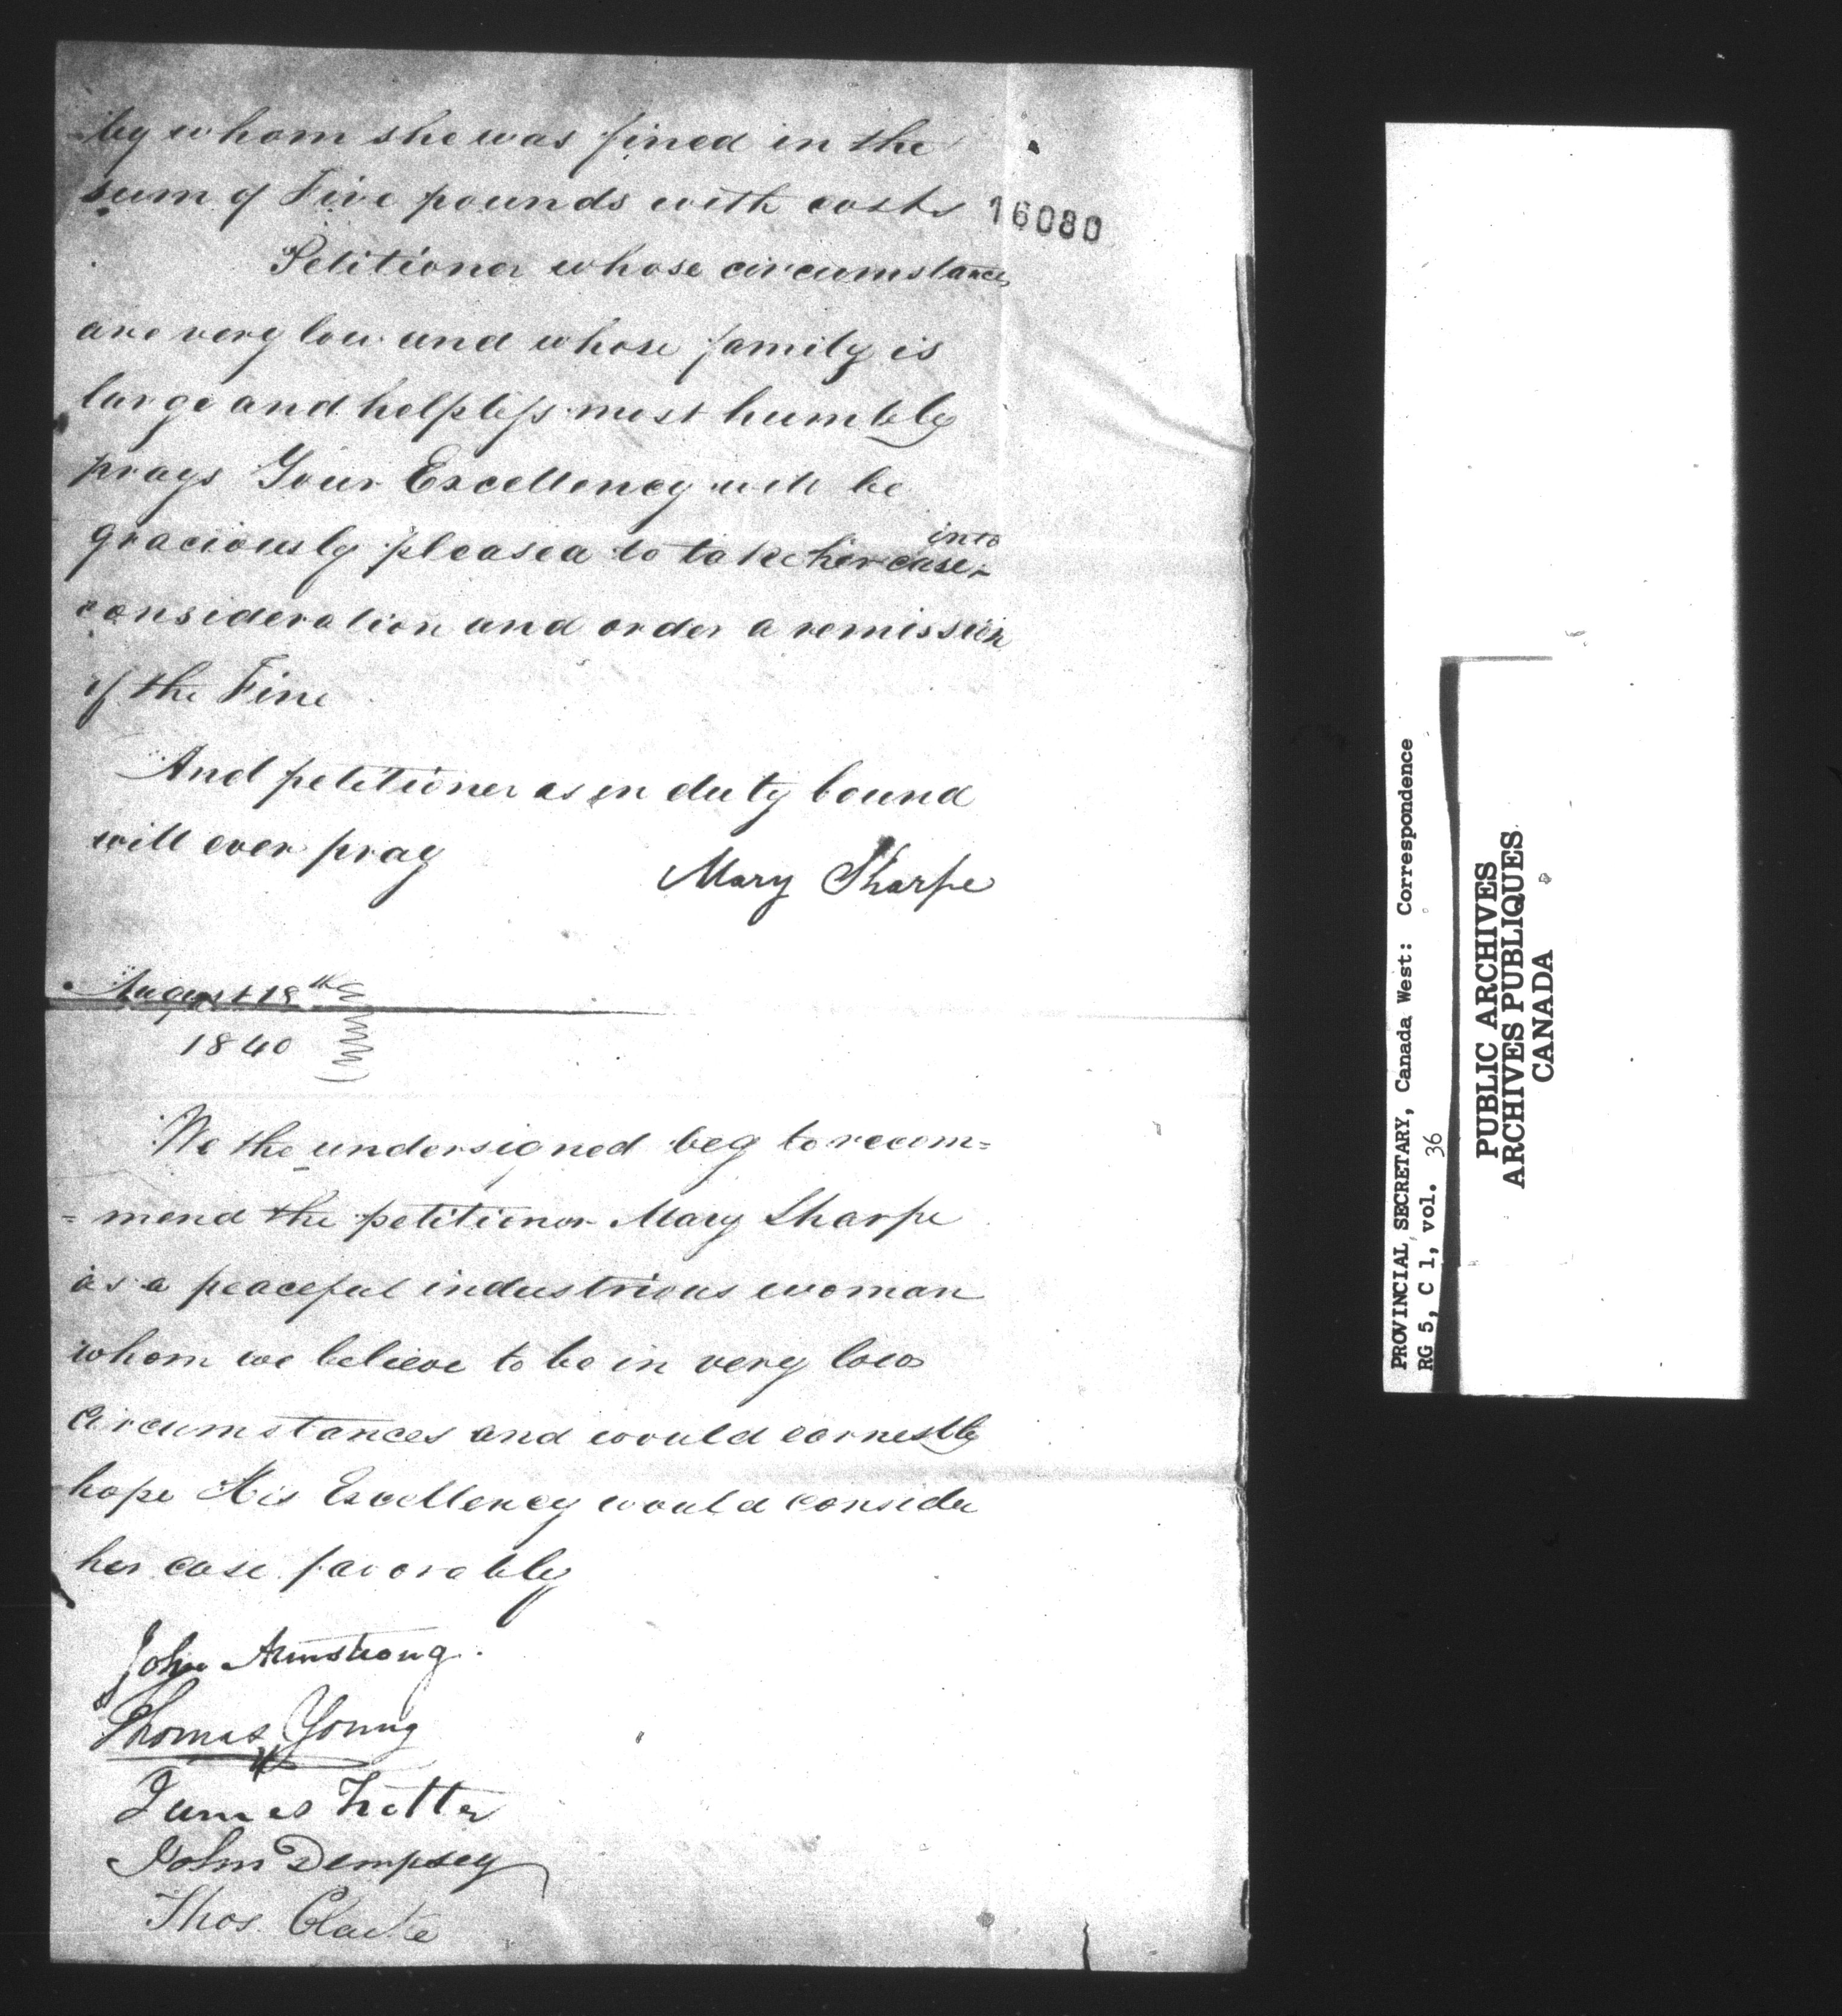 by whom she was fined in the
sum of Five pounds with costs
16080
Petitioner whose circumstances
are very low and whose family is
large and helpless most humbly
prays Your Excellency will be
graciously pleased to take her case into
consideration and order a remission
of the Fine
And petitioner as in duty bound
will ever pray
Mary Sharpe
August 18th
1840
We the undersigned beg to recom=
=mend the petitioner Mary Sharpe
as a peaceful industrious woman
whom we believe to be in very low
circumstances and would earnestly
hope His Excellency would consider
her case favorably
John Armstrong.
Thomas Young
James Trotter
John Dempsey
Thos. Clarke
PROVINCIAL SECRETARY, Canada West: Correspondence
RG 5, C 1, vol. 36
PUBLIC ARCHIVES
ARCHIVES PUBLIQUES
CANADA